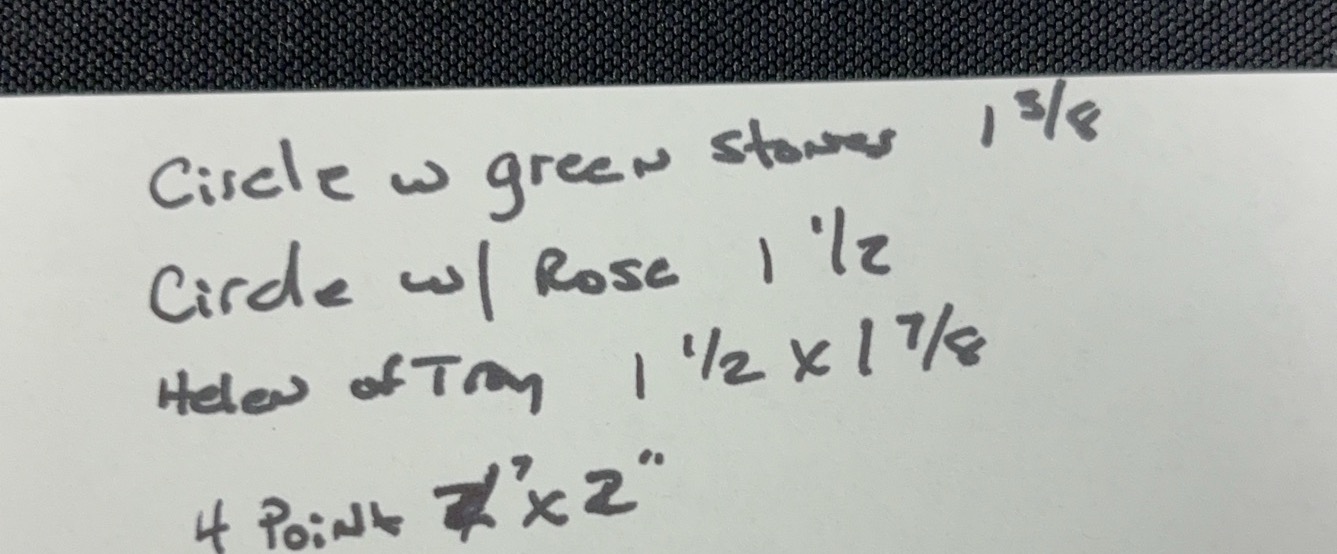 Circle w green stones 1 3/8
Circle w/ Rose 1 1/2
Helen of Troy 1 1/2 x 1 7/8
4 Point x 2"